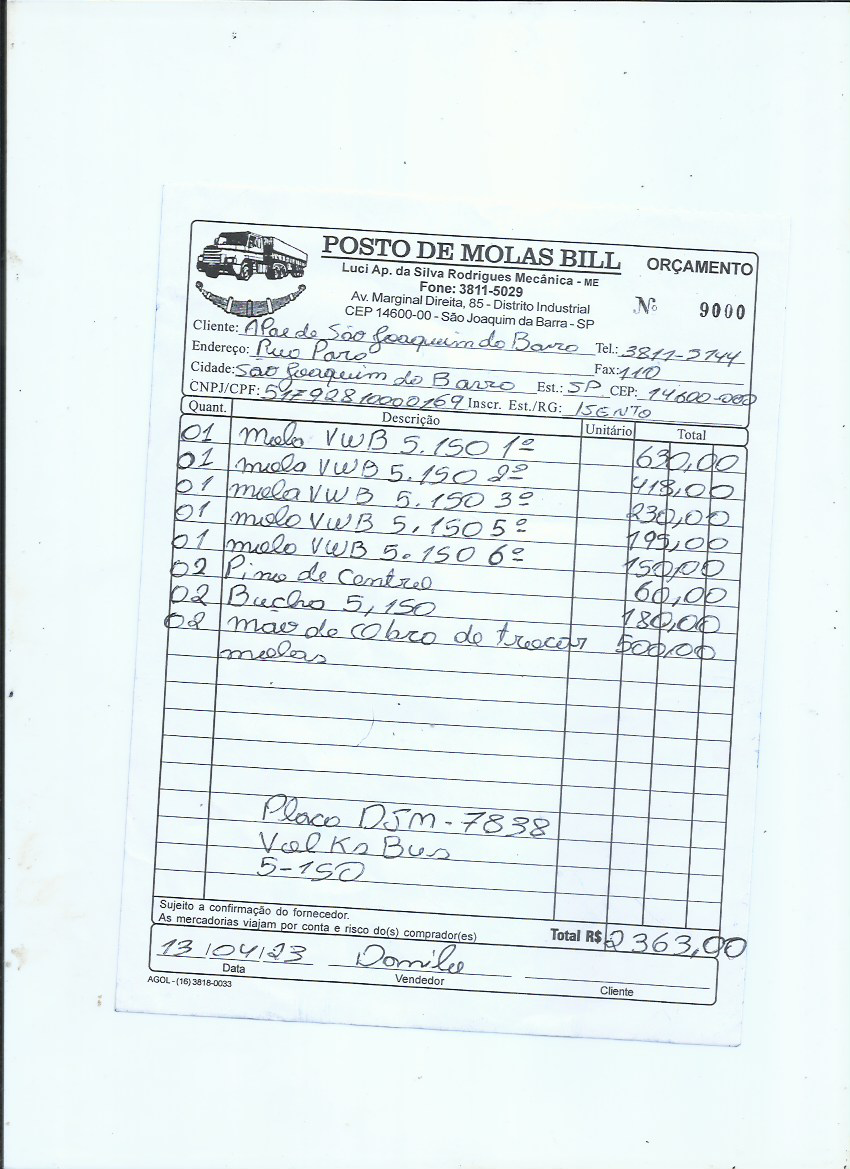 POSTO DE MOLAS BILL
ORÇAMENTO
Luci Ap. da Silva Rodrigues Mecânica - ME
Fone: 3811-5029
Av. Marginal Direita, 85 - Distrito Industrial
CEP 14600-00 - São Joaquim da Barra - SP
Nº 9000
Cliente: Apae de São Joaquim da Barra Tel.: 3811-2744
Endereço: Rua Pará Fax: 110
Cidade: São Joaquim da Barra Est.: SP CEP: 14600-000
CNPJ/CPF: 51792810000169 Inscr. Est./RG: ISENTO
Quant. Descrição Unitário Total
01 mola VWB 5.150 1º 630,00
01 mola VWB 5.150 2º 418,00
01 mola VWB 5.150 3º 230,00
01 mola VWB 5.150 5º 195,00
01 mola VWB 5.150 6º 150,00
02 Pino de Centro 60,00
02 Bucha 5,150 180,00
02 mao de Obra de trocar 500,00
molas
Placa DJM-7838
Volks Bus
5-150
Sujeito a confirmação do fornecedor.
As mercadorias viajam por conta e risco do(s) comprador(es)
Total R$ 2363,00
13/04/23 Danilo
Data Vendedor Cliente
AGOL - (16) 3818-0033